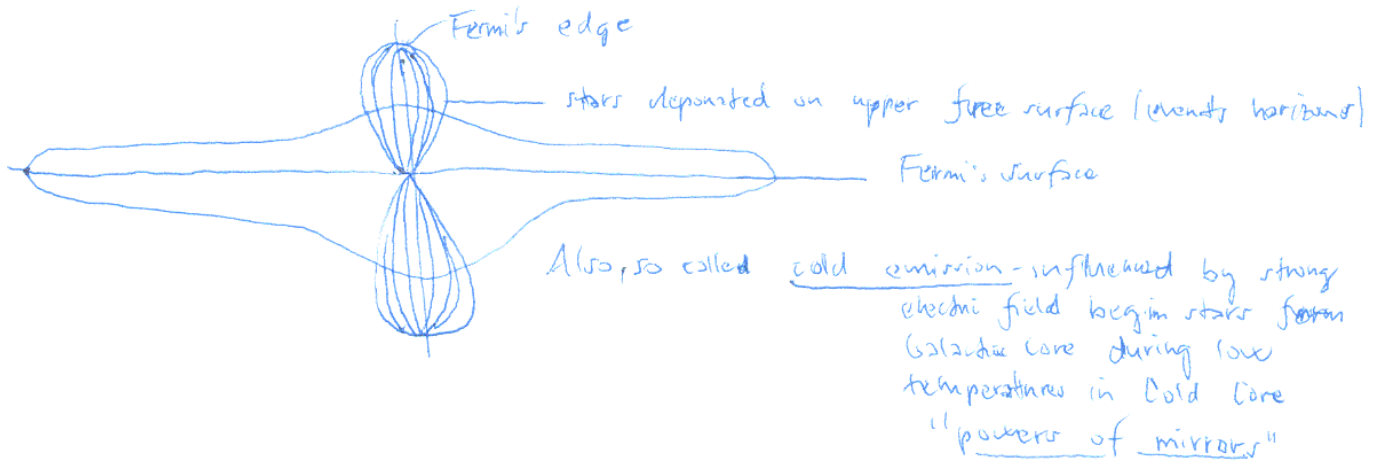 Fermi's edge
stars deponated on upper free surface (events horizons)
Fermi's surface
Also, so called cold emission - influenced by strong
electric field begin stars form
Galactic Core during low
temperatures in Cold Core
"powers of mirrors"